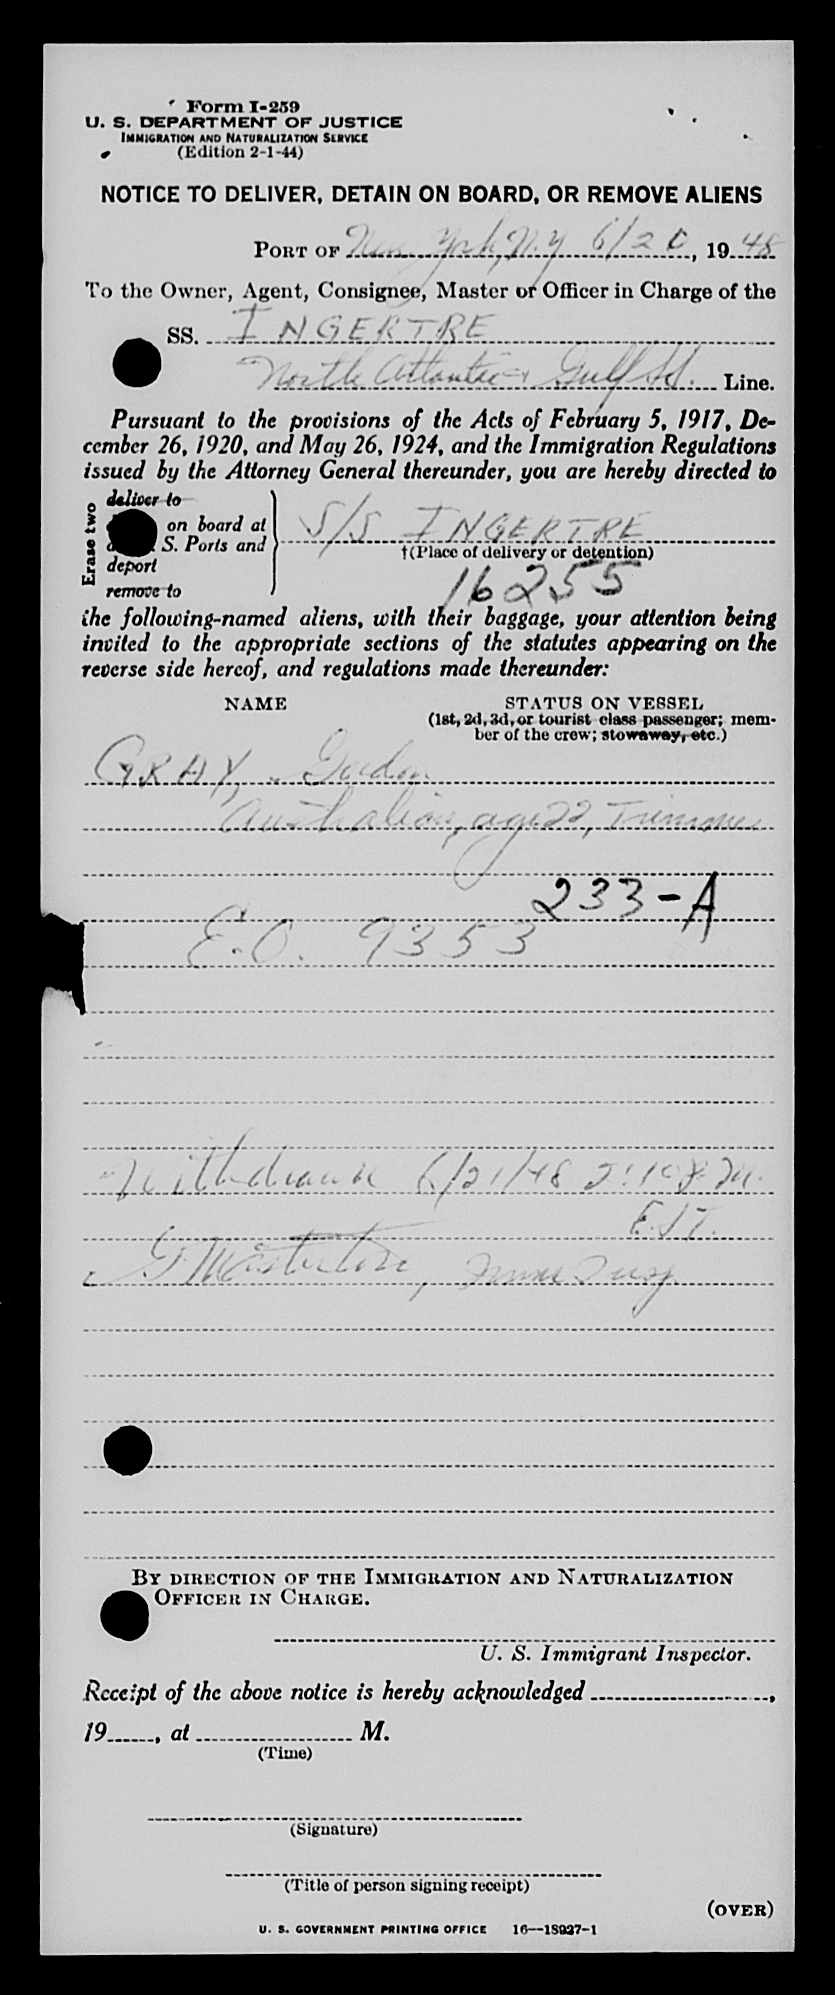 Form I-259
U. S. DEPARTMENT OF JUSTICE
IMMIGRATION AND NATURALIZATION SERVICE
(Edition 2-1-44)
NOTICE TO DELIVER, DETAIN ON BOARD, OR REMOVE ALIENS
PORT OF New York, N.Y 6/20, 1948
To the Owner, Agent, Consignee, Master or Officer in Charge of the
SS. INGERTRE
North Atlantic & Gulf SS. Line.
Pursuant to the provisions of the Acts of February 5, 1917, De-
cember 26, 1920, and May 26, 1924, and the Immigration Regulations
issued by the Attorney General thereunder, you are hereby directed to
Erase two
deliver to
on board at
S. Ports and
deport
remove to
S/S INGERTRE
†(Place of delivery or detention)
16255
the following-named aliens, with their baggage, your attention being
invited to the appropriate sections of the statutes appearing on the
reverse side hereof, and regulations made thereunder:
NAME STATUS ON VESSEL
(1st, 2d, 3d, or tourist class passenger; mem-
ber of the crew; stowaway, etc.)
GRAY, Gordon
Australian, age 22, Trimmer
233-A
E.O. 9353
Withdrawn 6/21/48 2:10 P.M.
E.S.T.
G Masterton, Imm Insp
BY DIRECTION OF THE IMMIGRATION AND NATURALIZATION
OFFICER IN CHARGE.
U. S. Immigrant Inspector.
Receipt of the above notice is hereby acknowledged ,
19 , at M.
(Time)
(Signature)
(Title of person signing receipt)
(OVER)
U. S. GOVERNMENT PRINTING OFFICE 16—18927-1